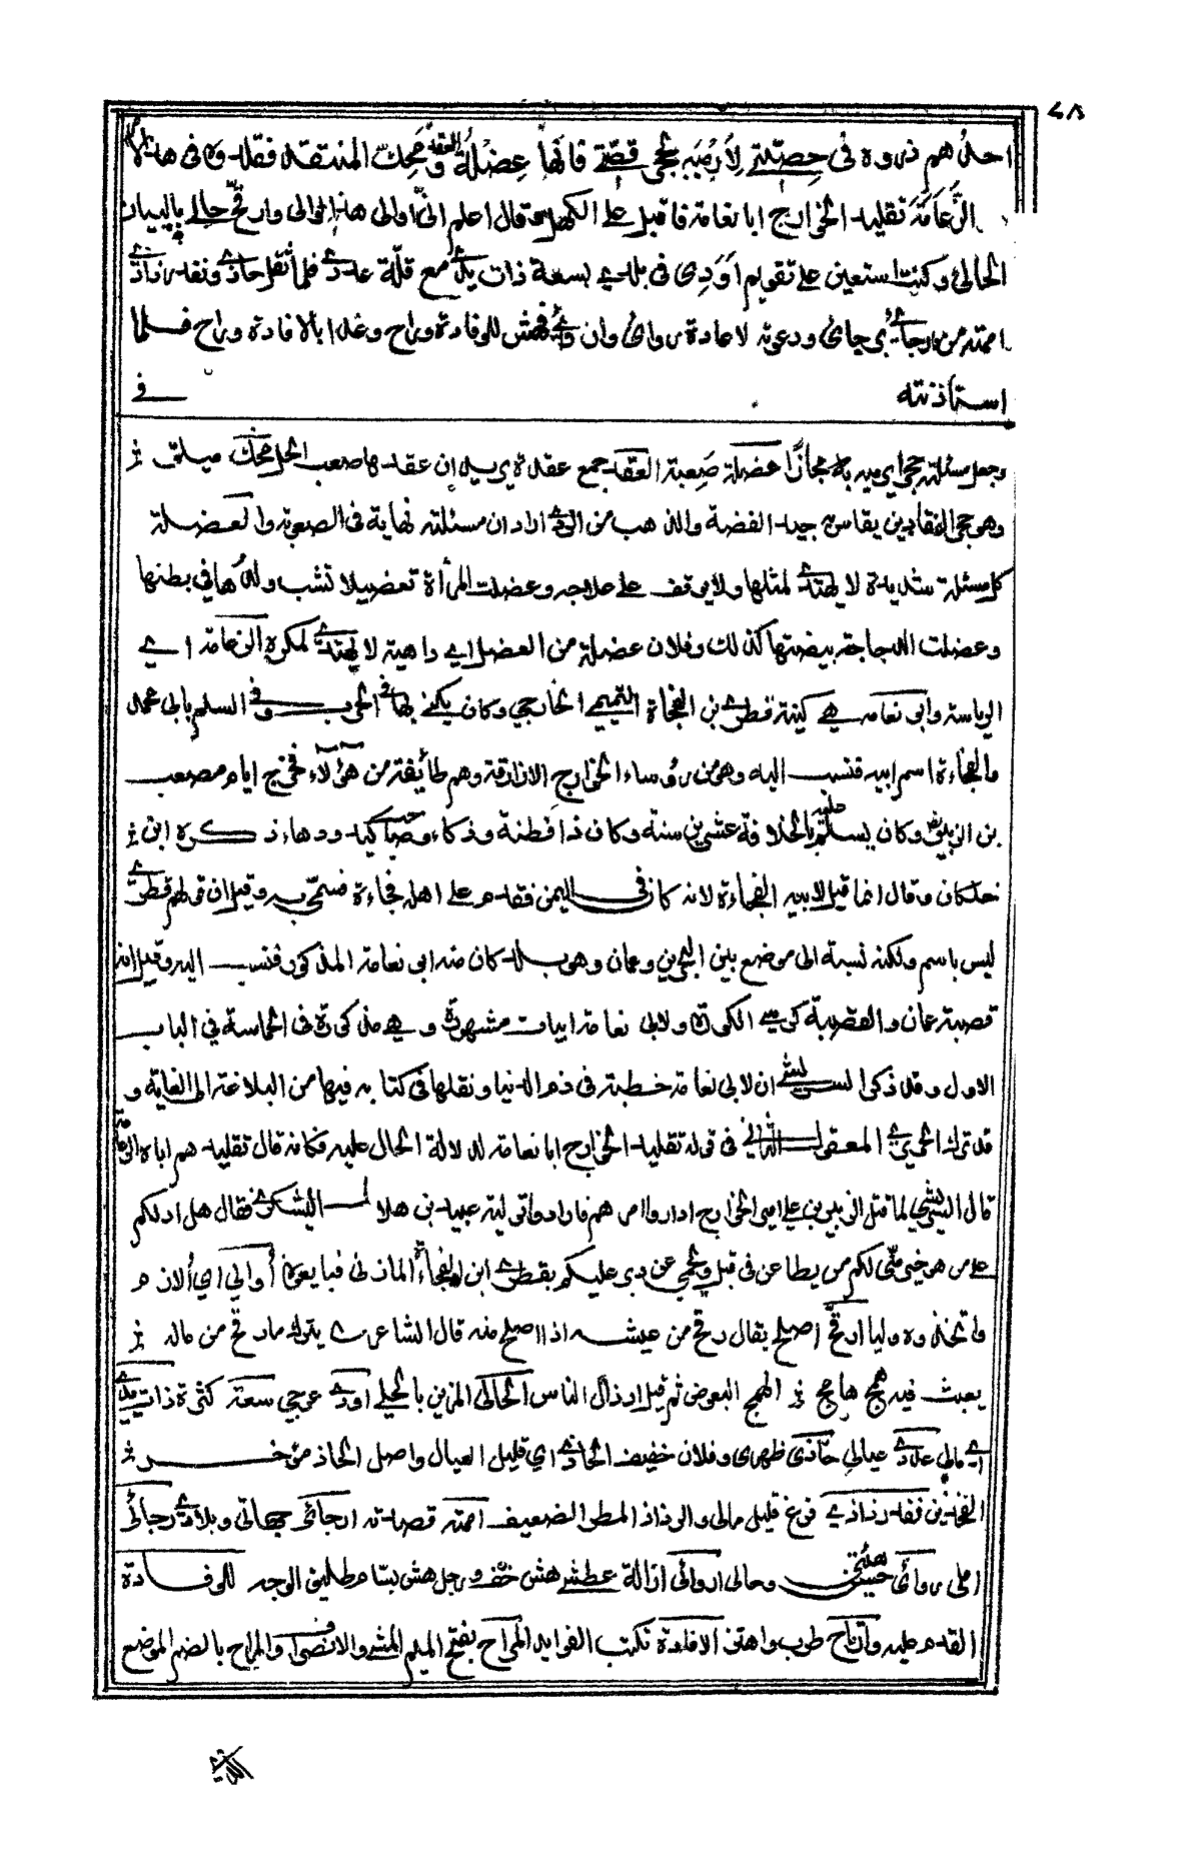 احدهم ذروه في حصتي لأرميه بحجر قصتي فانها عضلة العقد ومحك المنتقد فقلدوه في هذا الامر
الزعامة تقليد الخوارج ابا نعامة فاقبل على الكهل وقال اعلم اني اوالي هذا الوالي وارقح حالي بالبيان
الحالي وكنت استعين على تقويم اودي في بلدي بسعة ذات يدي مع قلة عددي فلما ثقل حاذي ونفد رذاذي
اممته من ارجائي برجائي ودعوته لاعادة روائي واروائي فهش للوفادة وراح وغدا بالافادة وراح فلما
استأذنته في
وجعل مسئلته حجرا يرميه به مجازا عضلة صعبة العقد جمع عقدة يريد ان عقدها صعب الحل محك
وهو حجر النقادين يقاس به جيد الفضة والذهب من الردي اراد ان مسئلته نهاية في الصعوبة والعضلة
كل مسئلة شديدة لا يهتدى لمثلها ولا يوقف على علاجه وعضلت المرأة تعضيلا نشب ولدها في بطنها
وعضلت الدجاجة ببيضتها كذلك وفلان عضلة من العضل اي داهية لا يهتدى لمكره الزعامة اي
الرياسة وابو نعامة هي كنية قطري بن الفجاءة التميمي الخارجي وكان يكنى بها في الحرب وفي السلم بابي محمد
والفجاءة اسم ابيه فنسب اليه وهو من رؤساء الخوارج الازارقة وهم طائفة من هؤلاء فخرج ايام مصعب
بن الزبير وكان يسلم عليه بالخلافة عشرين سنة وكان ذا فطنة وذكاء ودهاء ذكره ابن
خلكان وقال انما قيل لابيه الفجاءة لانه كان في اليمن فقدم على اهله فجاءة فسمي به وقيل ان قولهم قطري
ليس باسم ولكنه نسبة الى موضع بين البحرين وعمان وهو بلد كان منه ابو نعامة المذكور فنسب اليه وقيل انه
قصبة عمان والقصبة كرسي الكورة ولابي نعامة ابيات مشهورة وهي مذكورة في الحماسة في الباب
الاول وقد ذكر الشريشي ان لابي نعامة خطبة في ذم الدنيا ونقلها في كتابه فيها من البلاغة الى الغاية و
قد ترك الحريري المفعول الثاني في قوله تقليد الخوارج ابا نعامة لدلالة الحال عليه فكانه قال تقليدهم اياه الزعامة
قال الشريشي لما قتل الزبير بن علي امير الخوارج اداروا امرهم فارادوا تولية عبيد بن هلال اليشكري فقال هل ادلكم
على من هو خير مني لكم من يطاعن في قبل ويحمي عن دبر عليكم بقطري ابن الفجاءة المازني فبايعوه أوالي اي ألازم
واتخذوه وليا ارقح اصلح يقال رقح من عيشه اذا اصلح منه قال الشاعر يترك ما رقح من ماله
يعيث فيه همج هامج الهمج البعوض ثم قيل لرذال الناس الحالي المزين بالحلي اودي عوجي سعة كثرة ذات يدي
اي مالي عددي عيالي حاذي ظهري وفلان خفيف الحاذ اي قليل العيال واصل الحاذ مؤخر
الفخذين نفد رذاذي فرغ قليل مالي والرذاذ المطر الضعيف اممته قصدته ارجائي جهاتي وبلادي رجائي
املي روائي حسن هيئتي وحالي اروائي ازالة عطشي هش خف ورجل هش بش مطلق الوجه للوفادة
القدوم عليه وارتاح طرب واهتز الافادة تكسب الفوايد المراح بفتح الميم المشي والانصراف والمراح بالضم الموضع
الذي